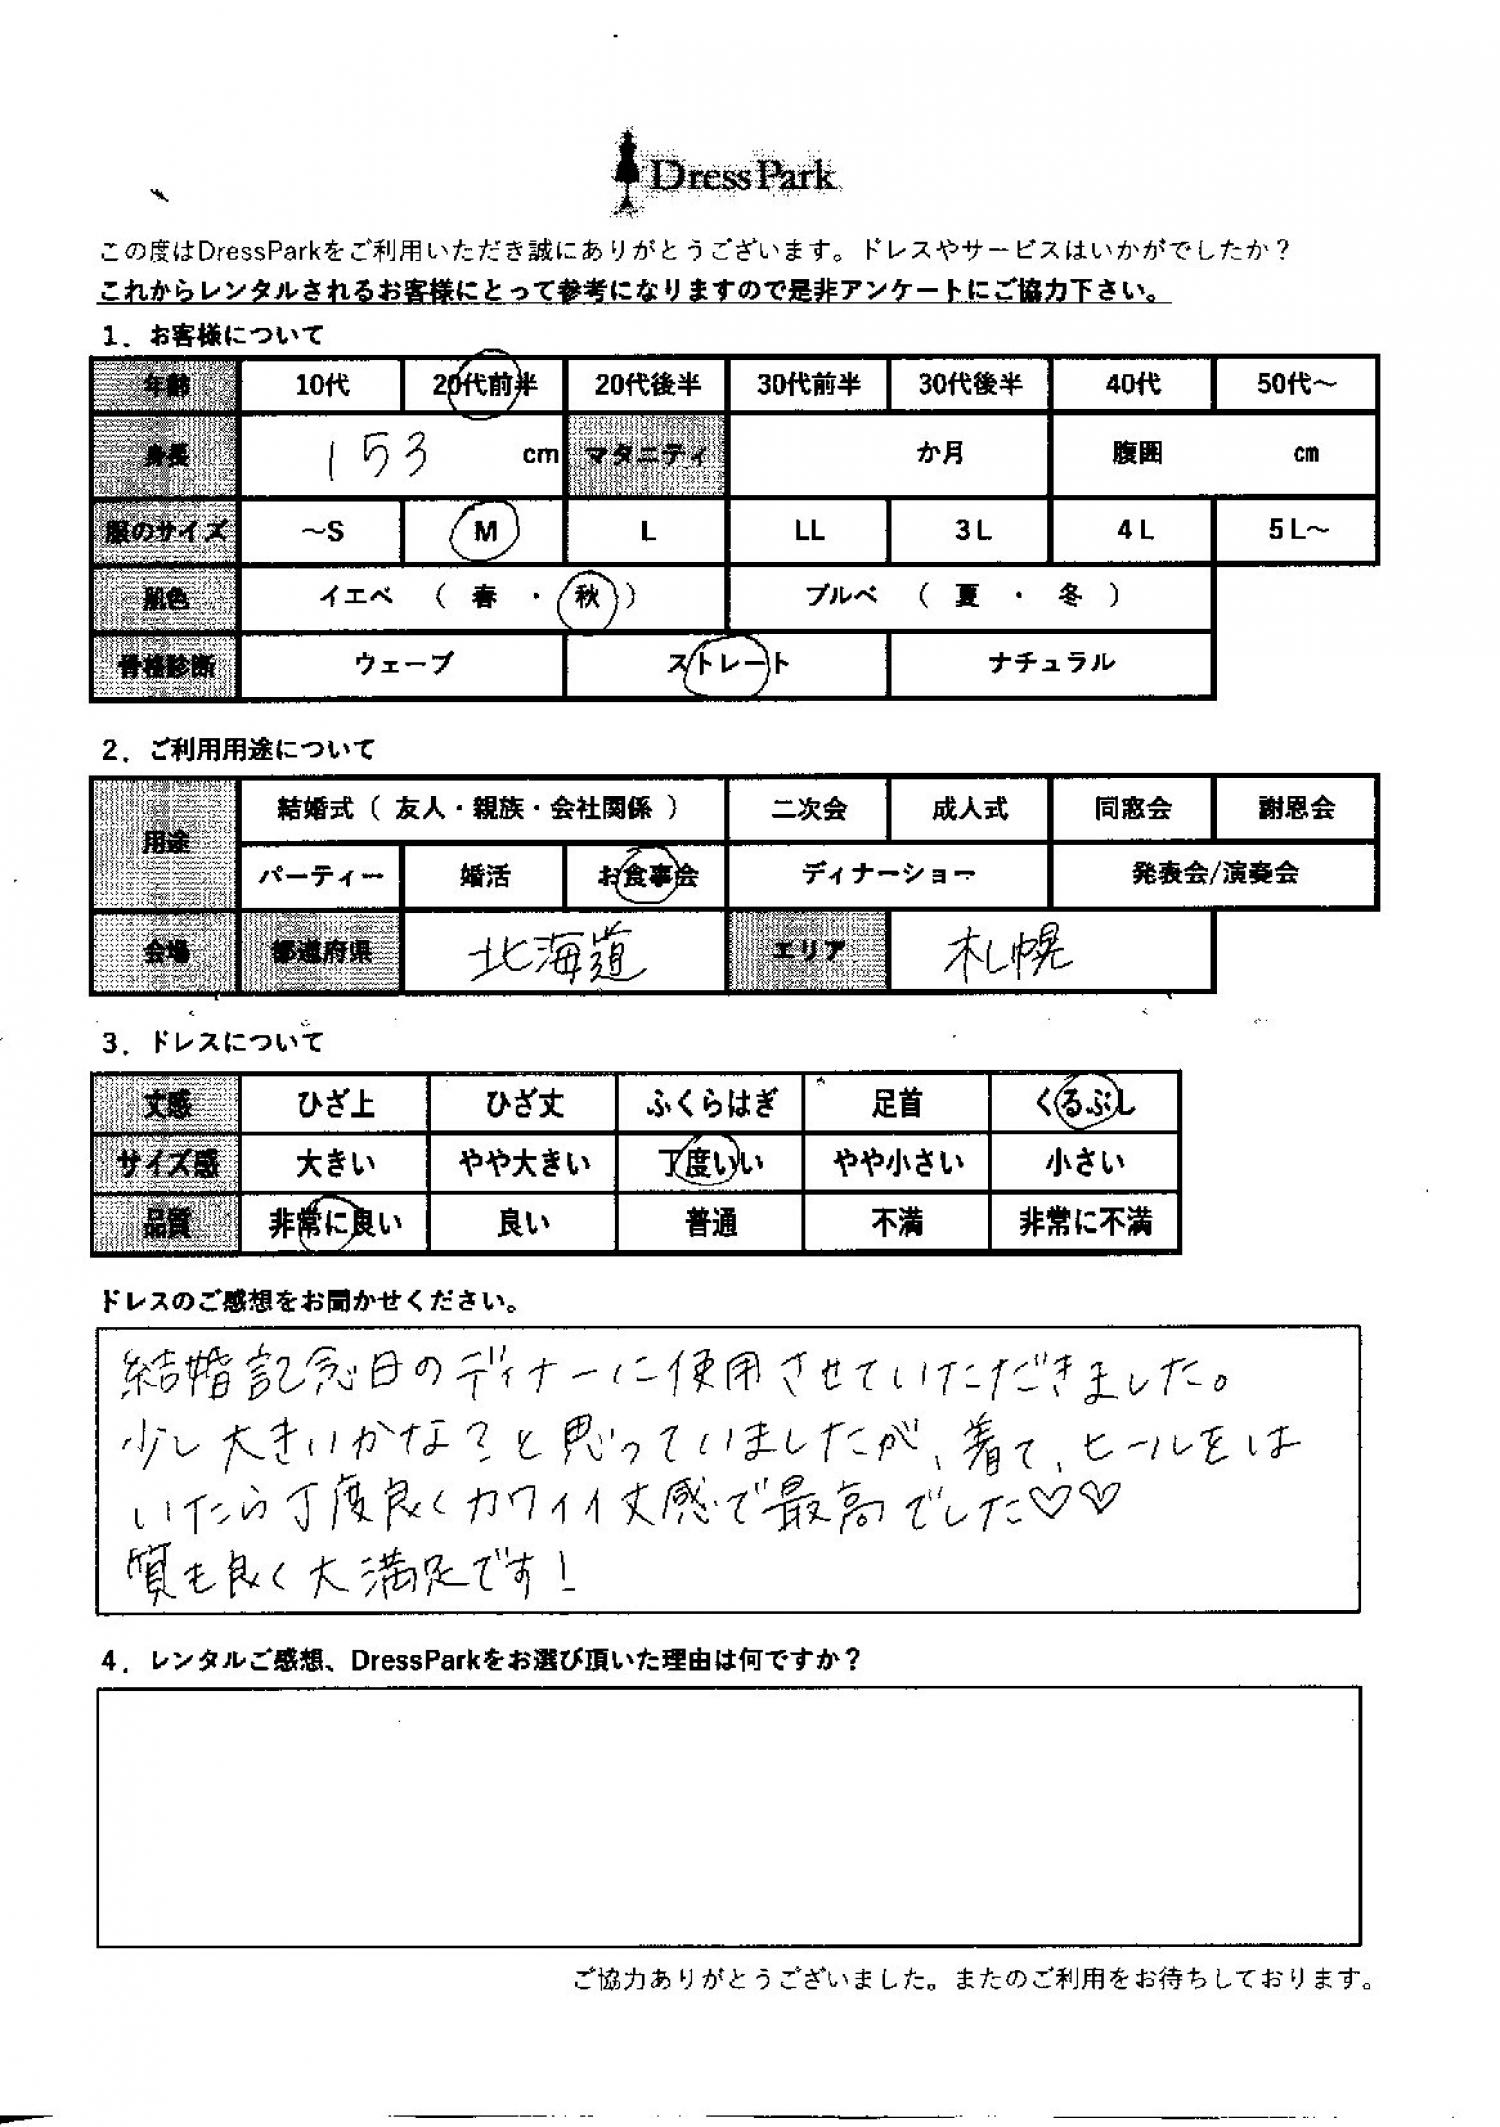 DressPark
この度はDressParkをご利用いただき誠にありがとうございます。ドレスやサービスはいかがでしたか？
これからレンタルされるお客様にとって参考になりますので是非アンケートにご協力下さい。
1．お客様について
年齢 10代 20代前半 20代後半 30代前半 30代後半 40代 50代～
身長 153 cm マタニティ か月 腹囲 cm
服のサイズ ～S M L LL 3L 4L 5L～
肌色 イエベ （ 春 ・ 秋 ） ブルベ （ 夏 ・ 冬 ）
骨格診断 ウェーブ ストレート ナチュラル
2．ご利用用途について
用途 結婚式（ 友人・親族・会社関係 ） 二次会 成人式 同窓会 謝恩会
パーティー 婚活 お食事会 ディナーショー 発表会/演奏会
会場 都道府県 北海道 エリア 札幌
3．ドレスについて
丈感 ひざ上 ひざ丈 ふくらはぎ 足首 くるぶし
サイズ感 大きい やや大きい 丁度いい やや小さい 小さい
品質 非常に良い 良い 普通 不満 非常に不満
ドレスのご感想をお聞かせください。
結婚記念日のディナーに使用させていただきました。
少し大きいかな？と思っていましたが、着て、ヒールをは
いたら丁度良くカワイイ丈感で最高でした♡♡
質も良く大満足です！
4．レンタルご感想、DressParkをお選び頂いた理由は何ですか？
ご協力ありがとうございました。またのご利用をお待ちしております。